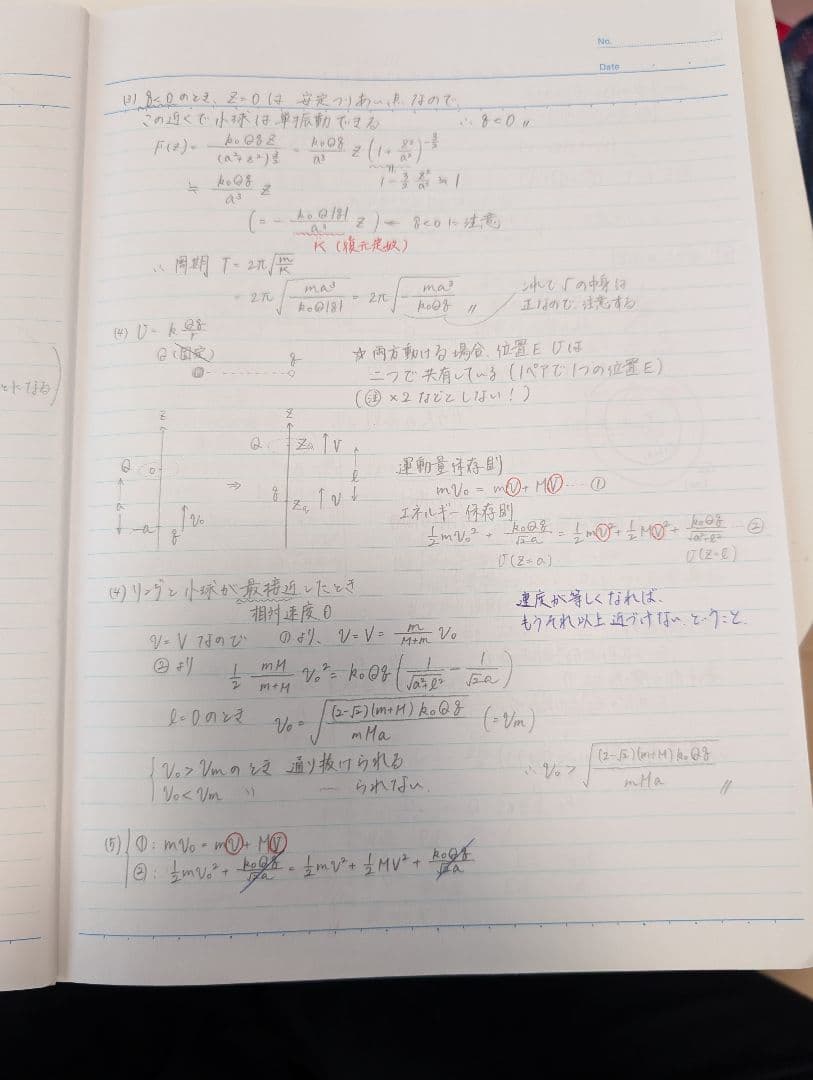 No.
Date
(3) q<0のとき、Z=0は 安定つりあい点なので
この近くで小球は単振動できる ∴ q<0 〃
F(z)= k₀Qqz/(a²+z²)^{3/2} = k₀Qq/a³ z (1+z²/a²)^{-3/2}
1-3/2 z²/a² ≒ 1
≒ k₀Qq/a³ z
(= - k₀Q|q|/a³ z) ← q<0に注意
K (復元定数)
∴ 周期 T=2π√(m/K)
= 2π√(ma³/k₀Q|q|) = 2π√(-ma³/k₀Qq) 〃
これで√の中身は
正なので、注意する
(4) U=k Qq/r
Q(固定) q
☆両方動ける場合、位置E Uは
二つで共有している (1ペアで1つの位置E)
(注 ×2 などとしない!)
z z
Q 0 a -a q v₀
⇒
Q Za V l q Zq v
運動量保存則
mv₀ = mv + MV … ①
エネルギー保存則
1/2 mv₀² + k₀Qq/√2a = 1/2 mv² + 1/2 MV² + k₀Qq/√(a²+l²) … ②
U(z=a) U(z=l)
(4) リングと小球が最接近したとき
相対速度0
速度が等しくなれば、
もうそれ以上近づけない、ということ。
v=V なので ①より、v=V= m/(M+m) v₀
②より 1/2 mM/(m+M) v₀² = k₀Qq (1/√(a²+l²) - 1/√2a)
l=0のとき v₀=√((2-√2)(m+M)k₀Qq/mMa) (=Vm)
v₀>Vmのとき 通り抜けられる
v₀<Vm 〃 〜 られない
∴ v₀ > √((2-√2)(m+M)k₀Qq/mMa) 〃
(5) ①: mv₀ = mv + MV
②: 1/2 mv₀² + k₀Qq/√2a = 1/2 mv² + 1/2 MV² + k₀Qq/√2a